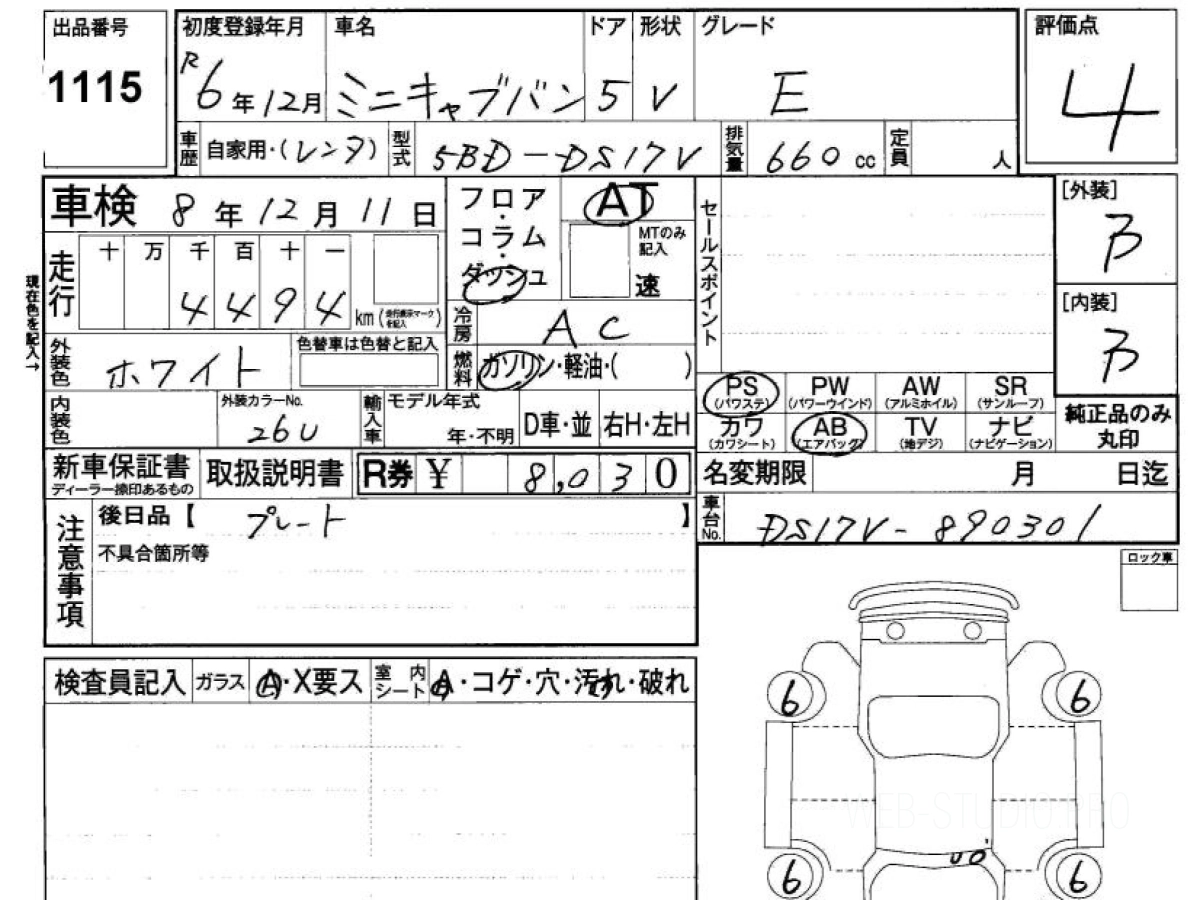 出品番号 初度登録年月 車名 ドア 形状 グレード 評価点
1115 R6年12月 ミニキャブバン 5 V E 4
車歴 自家用・(レンタ) 型式 5BD-DS17V 排気量 660cc 定員 人
車検 8年12月11日 フロア・コラム・ダッシュ AT セールスポイント [外装]
B
MTのみ記入 速
現在色を記入→
走行 十 万 千 百 十 一
4 4 9 4 km (走行表示マークを記入)
[内装]
B
冷房 AC
外装色 ホワイト 色替車は色替と記入 燃料 ガソリン・軽油・( )
PS (パワステ) PW (パワーウインド) AW (アルミホイル) SR (サンルーフ)
内装色 外装カラーNo. 26U 輸入車 モデル年式 年・不明 D車・並 右H・左H
カワ (カワシート) AB (エアバック) TV (地デジ) ナビ (ナビゲーション) 純正品のみ丸印
新車保証書 ディーラー捺印あるもの 取扱説明書 R券 ¥ 8,030 名変期限 月 日迄
車台No. DS17V-890301
注意事項 後日品【 プレート 】
不具合箇所等
ロック車
検査員記入 ガラス A・X要ス 室内シート A・コゲ・穴・汚れ・破れ
6 6
WEB-STUDIO.PRO
6 6